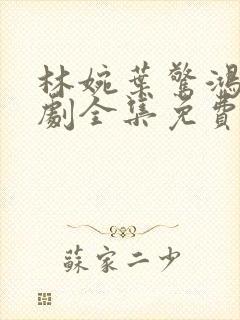 林婉葉驚鴻
劇全集免費
蘇家二少